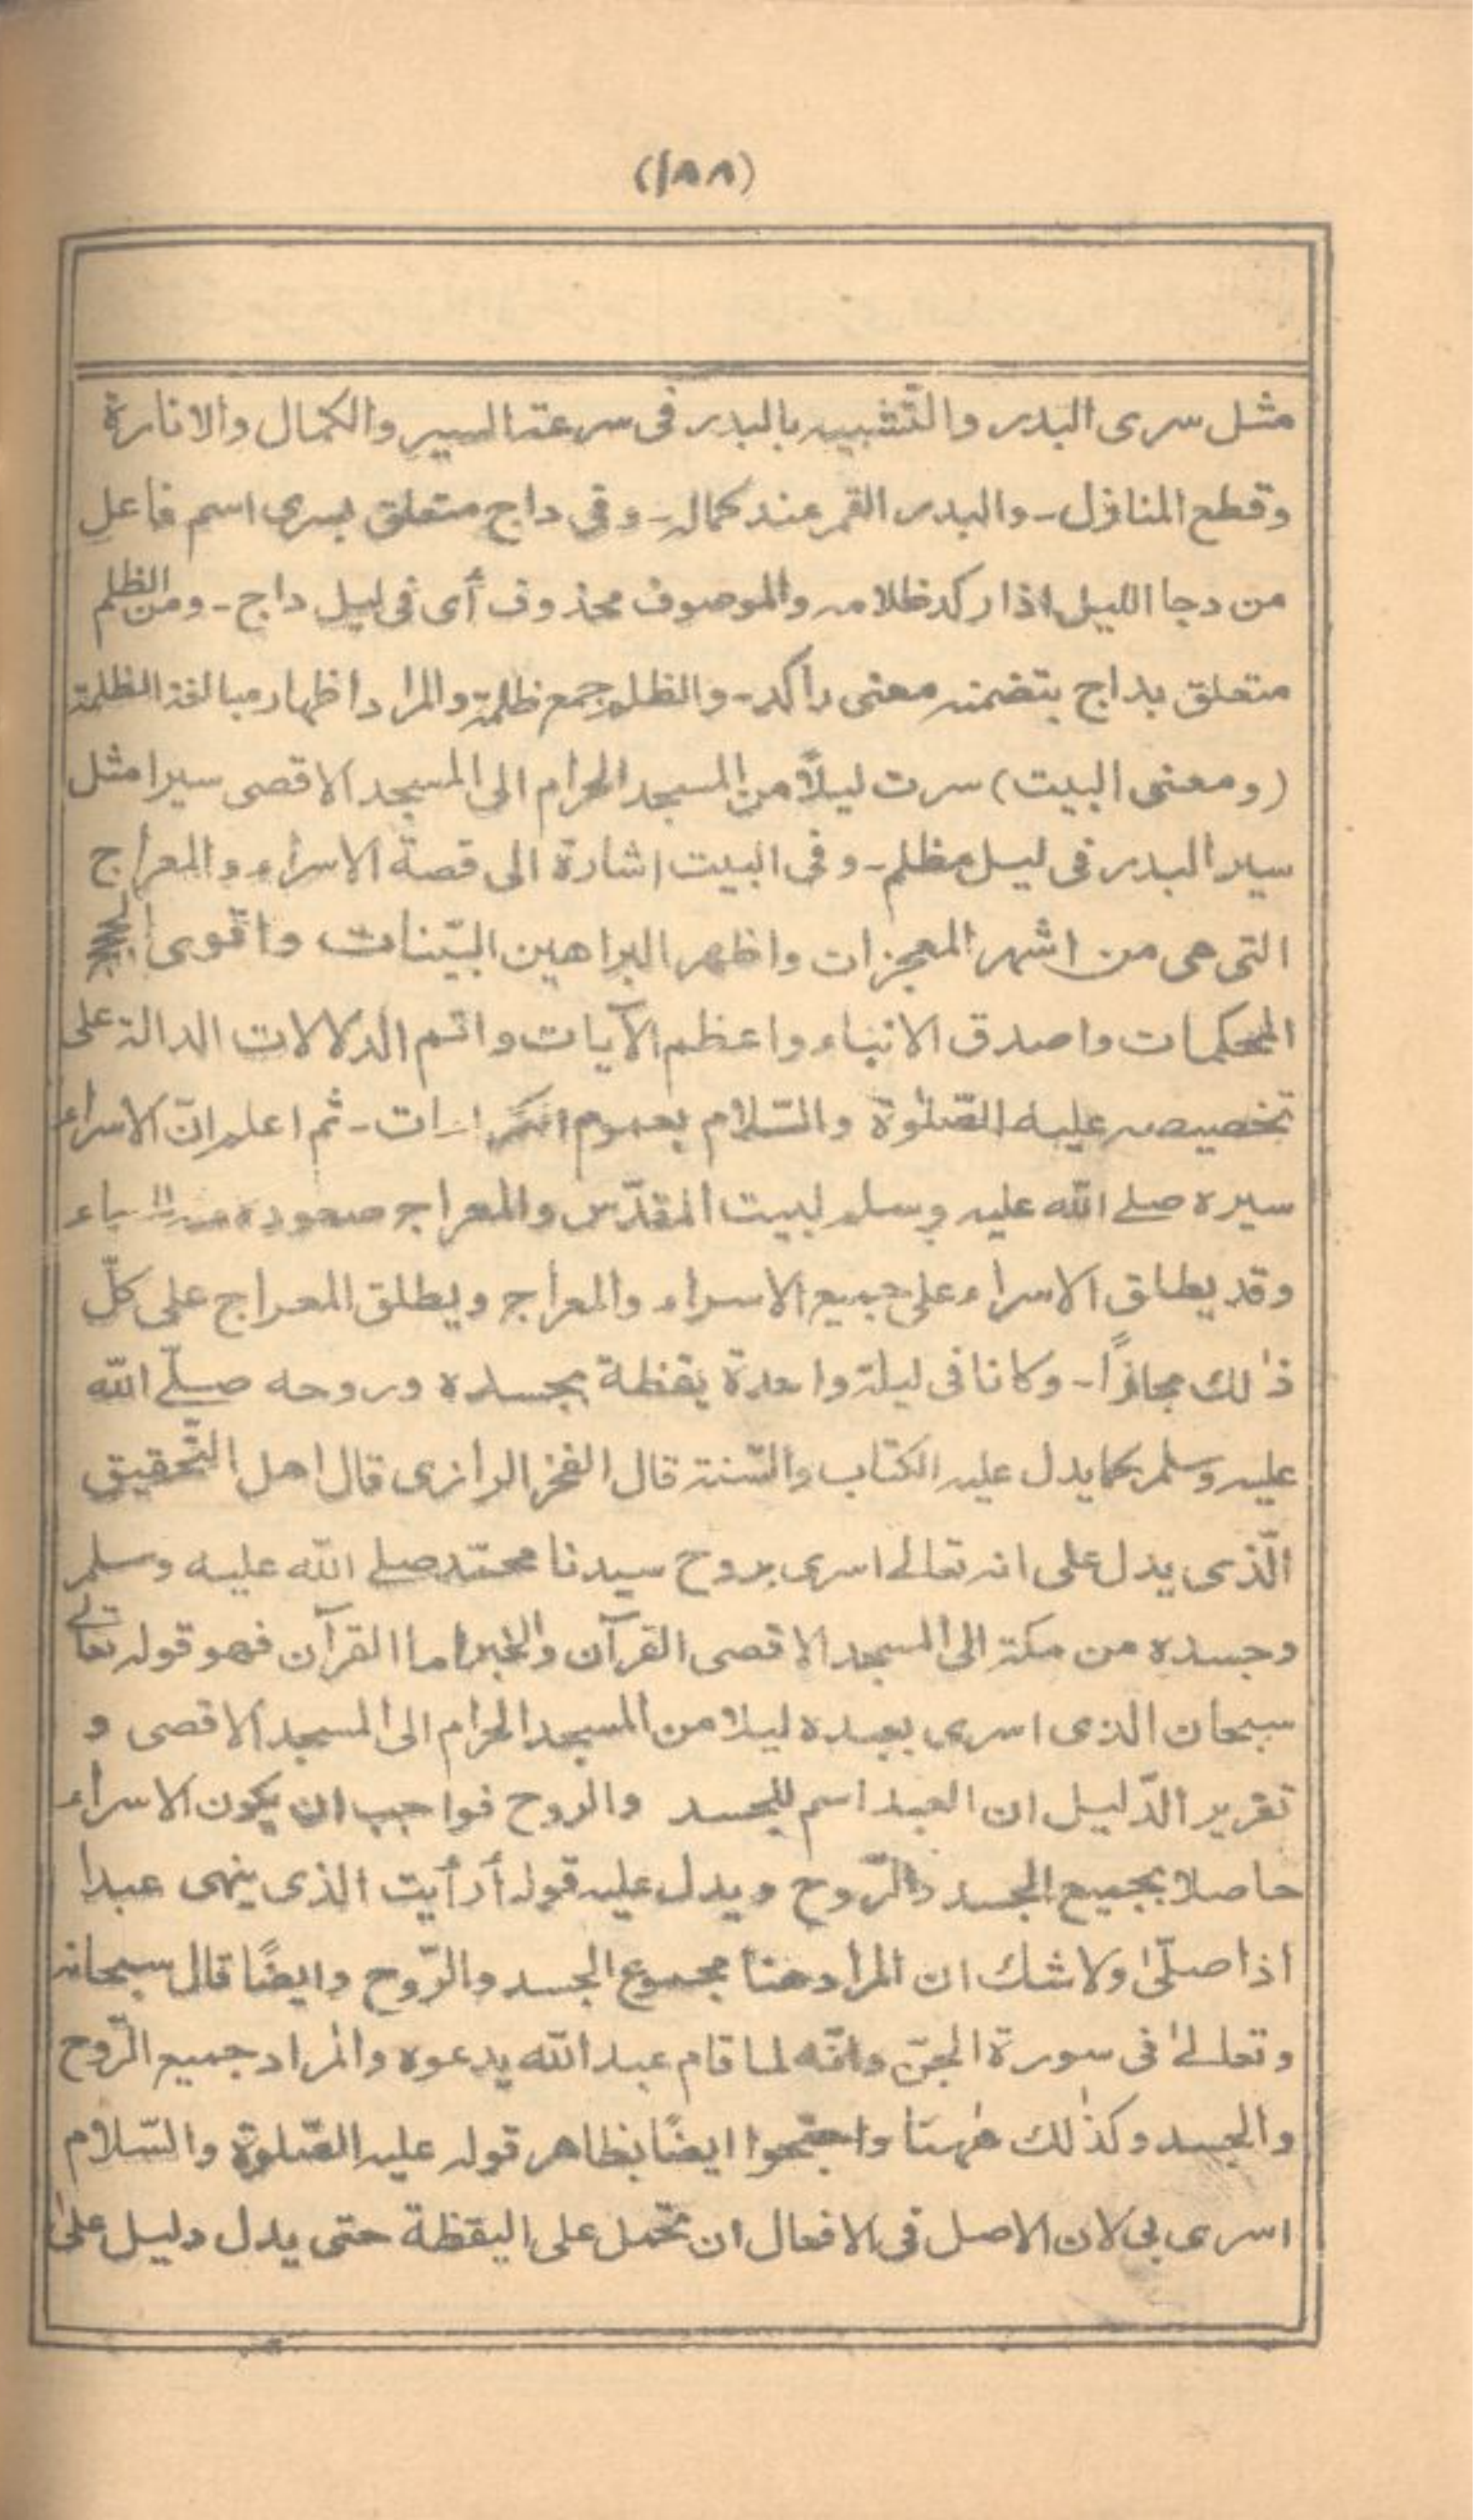 (١٨٨)
مثل سرى البدر والتّشبيه بالبدر فى سرعة السير والكمال والانارة
وقطع المنازل - والبدر القمر عند كماله - وفى داج متعلق بسرى اسم فاعل
من دجا الليل اذا ركد ظلامه والموصوف محذوف أى فى ليل داج - ومن الظلم
متعلق بداج بتضمنه معنى راكد - والظلم جمع ظلمة والمراد اظهار مبالغة الظلمة
(ومعنى البيت) سرت ليلاً من المسجد الحرام الى المسجد الاقصى سيرا مثل
سير البدر فى ليل مظلم - وفى البيت اشارة الى قصة الاسراء والمعراج
التى هى من اشهر المعجزات واظهر البراهين البيّنات واقوى
المحكمات واصدق الانباء واعظم الآيات واتم الدلالات الدالة على
تخصيصه عليه الصّلوة والسّلام بعموم - ثم اعلم انّ الاسراء
سيره صلے الله عليه وسلم لبيت المقدّس والمعراج صعوده
وقد يطلق الاسراء على جميع الاسراء والمعراج ويطلق المعراج على كلّ
ذٰلك مجازًا - وكانا فى ليلة واحدة يقظة بجسده وروحه صلّے الله
عليه وسلم كما يدل عليه الكتاب والسّنة قال الفخر الرازى قال اهل التّحقيق
الّذى يدل على انه تعالے اسرى بروح سيدنا محمّد صلے الله عليه وسلم
وجسده من مكة الى المسجد الاقصى القرآن والخبر اما القرآن فهو قوله تعالے
سبحان الذى اسرى بعبده ليلا من المسجد الحرام الى المسجد الاقصى و
تقرير الدّليل ان العبد اسم للجسد والروح فواجب ان يكون الاسراء
حاصلا بجميع الجسد والرّوح ويدل عليه قوله أرأيت الذى ينهى عبدا
اذا صلّىٰ ولا شك ان المراد هنا مجموع الجسد والرّوح وايضًا قال سبحانه
وتعالےٰ فى سورة الجنّ وانّه لما قام عبد الله يدعوه والمراد جميع الرّوح
والجسد وكذٰلك هٰهنا واحتجوا ايضًا بظاهر قوله عليه الصّلوة والسّلام
اسرى بى لان الاصل فى الافعال ان تحمل على اليقظة حتى يدل دليل علىٰ